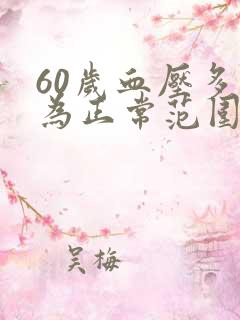 60歲血壓多
為正常范围
吴梅